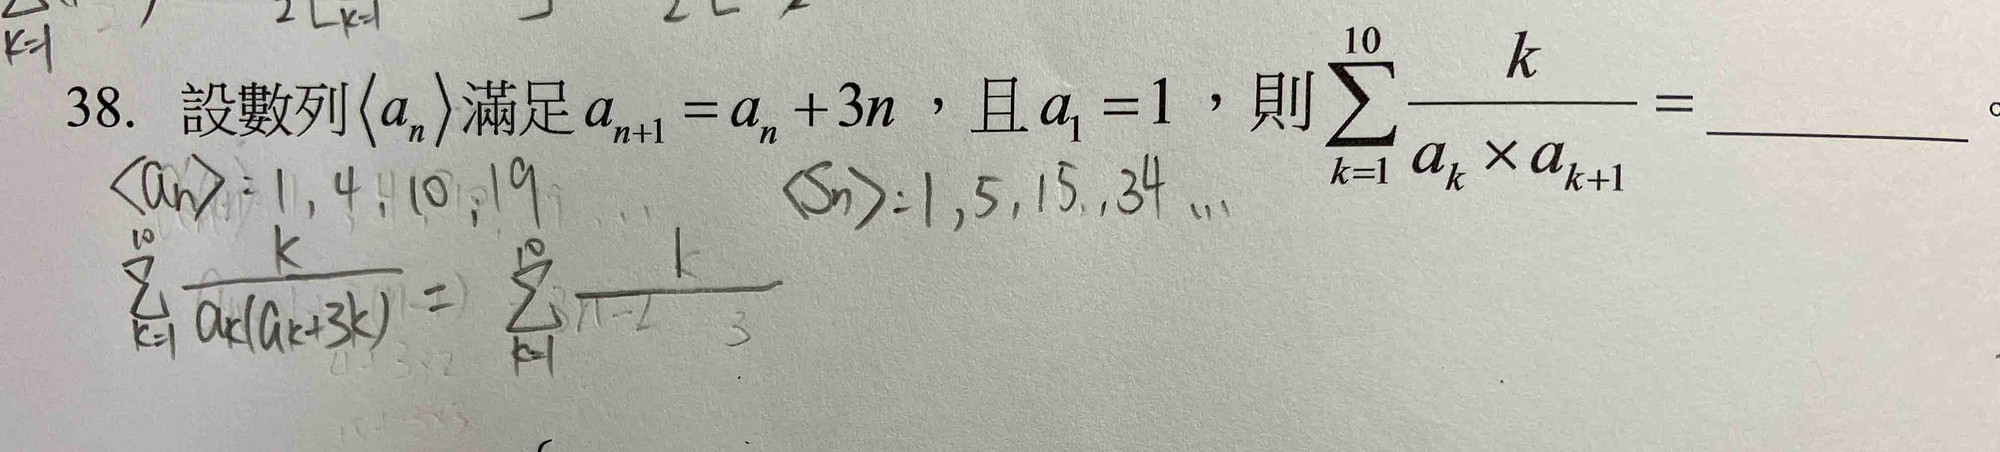 k=1 2 k=1 2
38. 設數列⟨aₙ⟩滿足 aₙ₊₁ = aₙ + 3n，且 a₁ = 1，則 ∑_{k=1}^{10} k/(aₖ × aₖ₊₁) = ______。
<an>: 1, 4, 10, 19 ... <Sn>: 1, 5, 15, 34 ...
∑_{k=1}^{10} k/(ak(ak+3k)) = ∑_{k=1}^{10} k/ 3